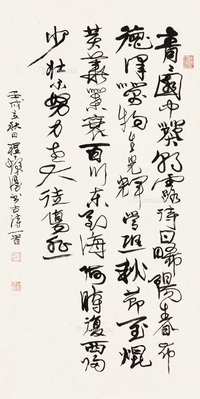 青青園中葵朝露待日晞陽春布
德澤萬物生光輝常恐秋節至焜
黄華葉衰百川東到海何時復西歸
少壯不努力老大徒傷悲